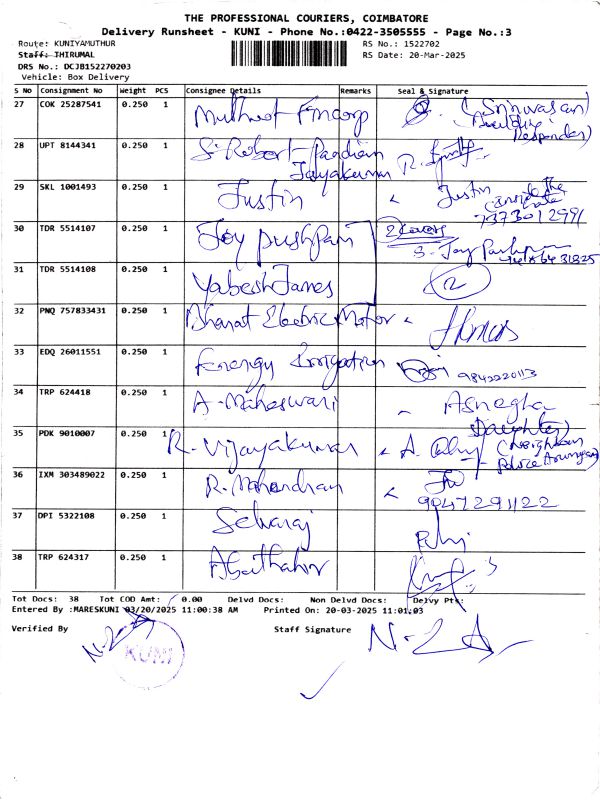 THE PROFESSIONAL COURIERS, COIMBATORE
Delivery Runsheet - KUNI - Phone No.:0422-3505555 - Page No.:3
Route: KUNIYAMUTHUR RS No.: 1522702
Staff: THIRUMAL RS Date: 20-Mar-2025
DRS No.: DCJB152270203
Vehicle: Box Delivery
S No Consignment No Weight PCS Consignee Details Remarks Seal & Signature
27 COK 25287541 0.250 1 Muthoot Fincorp (Srinivasan)
28 UPT 8144341 0.250 1 S. Robert Paadian
Jayakumar
29 SKL 1001493 0.250 1 Justin Justin
7373012991
30 TDR 5514107 0.250 1 Joy pushpam 2 Covers
31 TDR 5514108 0.250 1 Yabesh James 2
32 PNQ 757833431 0.250 1 Bharat Electric Motor
33 EDQ 26011551 0.250 1 Energy Irrigation 9842220113
34 TRP 624418 0.250 1 A. Maheswari Asnegha
Daughter)
35 PDK 9010007 0.250 1 R. Vijayakumar (Neighbour
36 IXM 303489022 0.250 1 R. Mahendran
9047291122
37 DPI 5322108 0.250 1 Selvaraj
38 TRP 624317 0.250 1 Abuthahir
Tot Docs: 38 Tot COD Amt: 0.00 Delvd Docs: Non Delvd Docs: Delvy Pts:
Entered By :MARESKUNI 03/20/2025 11:00:38 AM Printed On: 20-03-2025 11:01:03
Verified By Staff Signature
KUNI